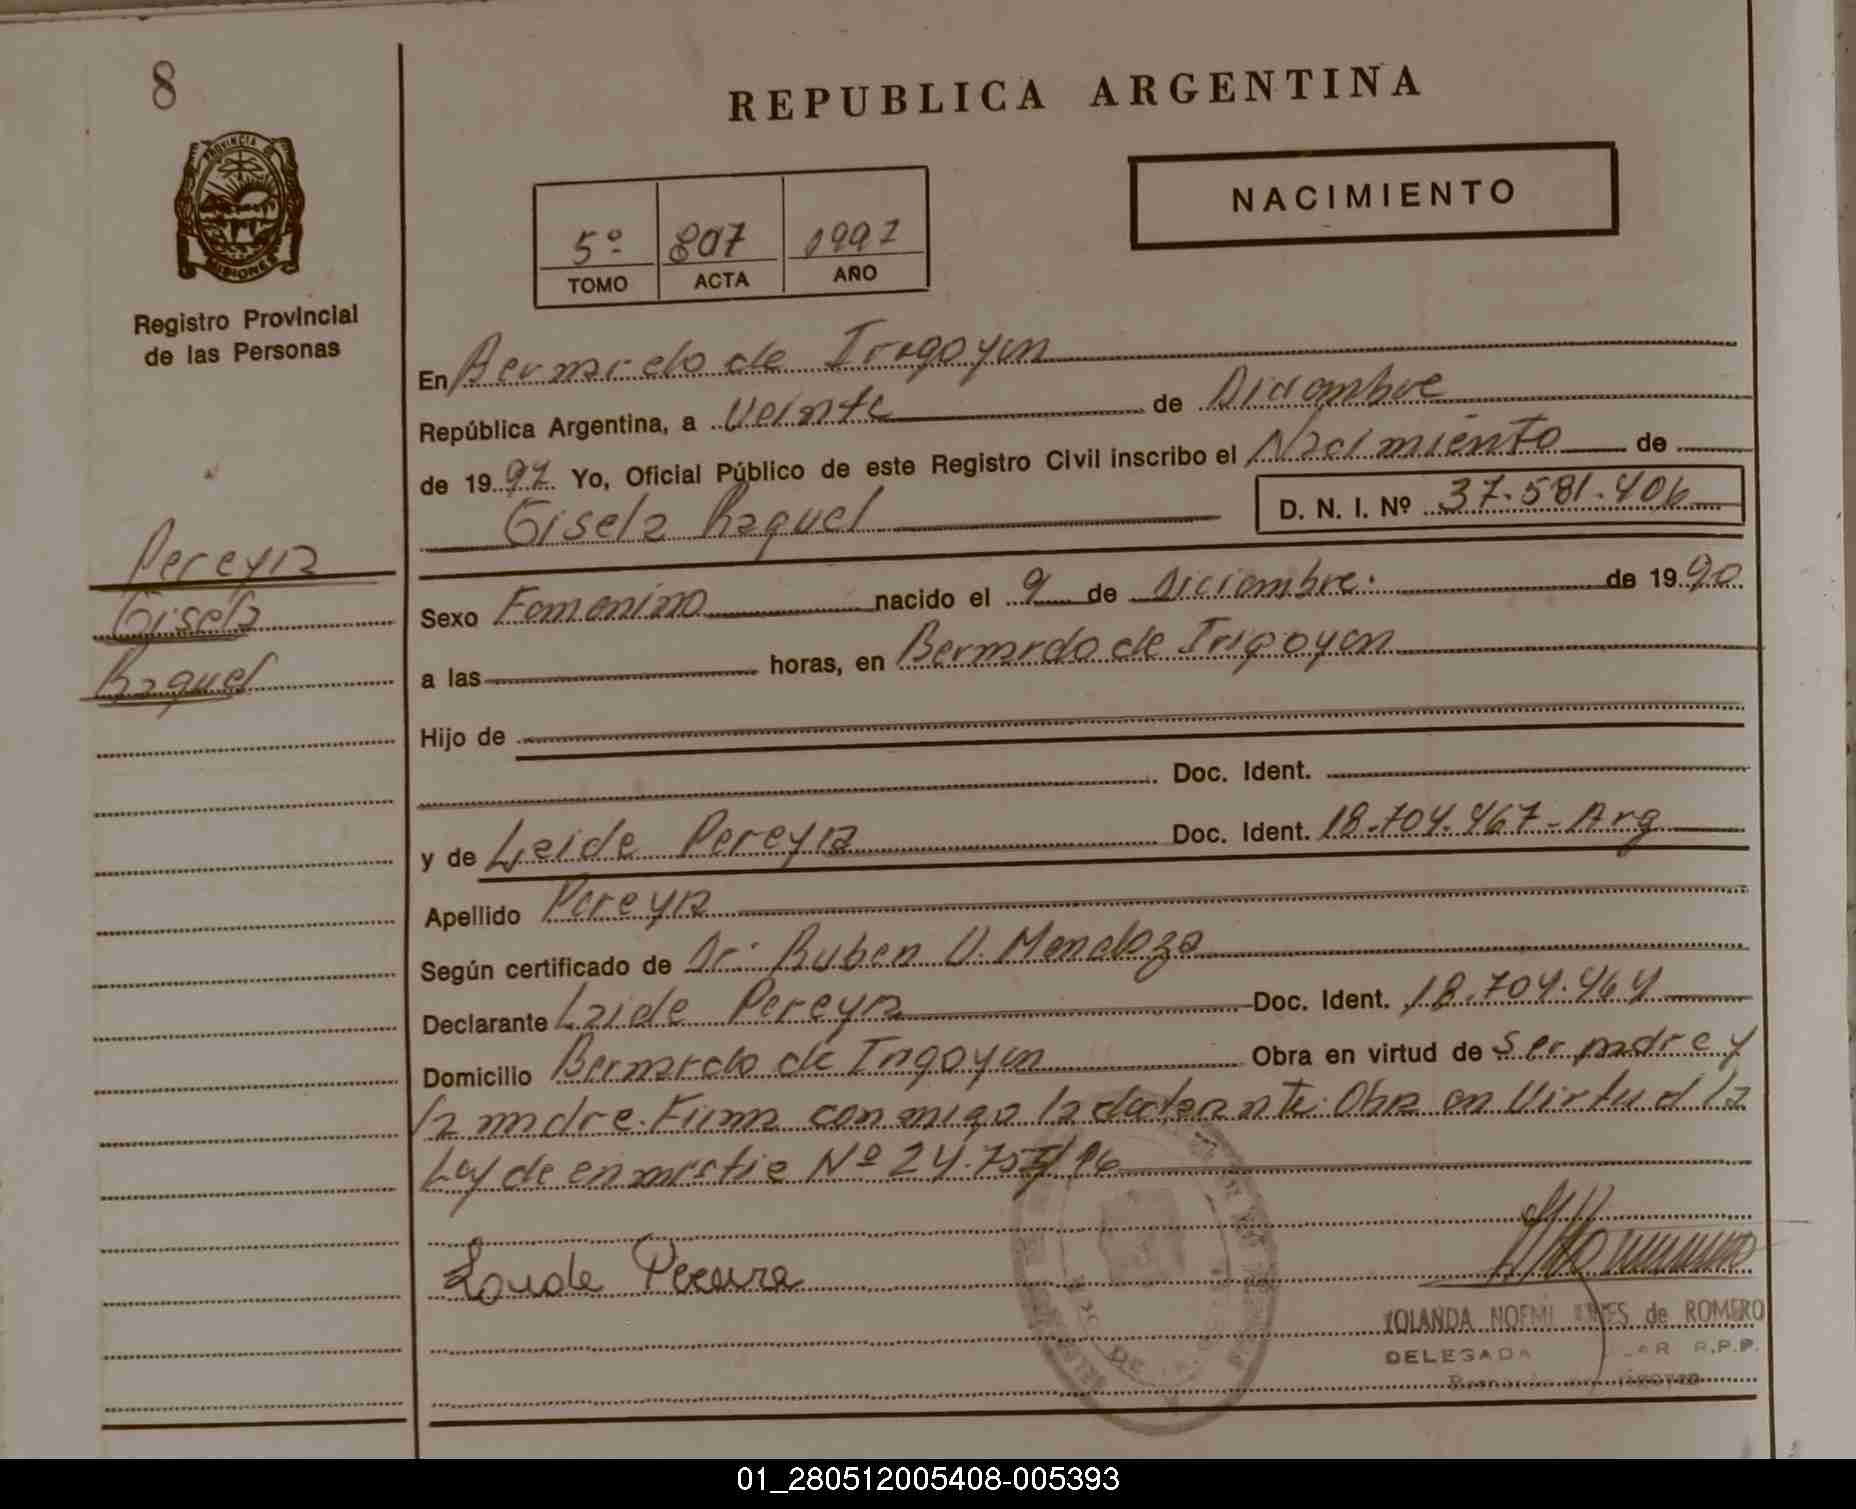 8
REPUBLICA ARGENTINA
NACIMIENTO
5º 807 1997
TOMO ACTA AÑO
PROVINCIA DE
MISIONES
Registro Provincial
de las Personas
En Bernardo de Irigoyen
República Argentina, a Veinte de Diciembre
de 1997 Yo, Oficial Público de este Registro Civil inscribo el Nacimiento de
Gisela Raquel D. N. I. Nº 37.581.406
Pereyra
Gisela
Raquel
Sexo Femenino nacido el 9 de Diciembre. de 1990
a las horas, en Bernardo de Irigoyen
Hijo de
Doc. Ident.
y de Leide Pereyra Doc. Ident. 18.704.467-Arg
Apellido Pereyra
Según certificado de Dr. Ruben D. Mendoza
Declarante Laide Pereyra Doc. Ident. 18.704.464
Domicilio Bernardo de Irigoyen Obra en virtud de ser madre y
la madre. Firma conmigo la declarante. Obra en Virtud la
Ley de Nº 24.755/96
Pereira
YOLANDA NOEMI de ROMERO
DELEGADA R.P.P.
01_280512005408-005393